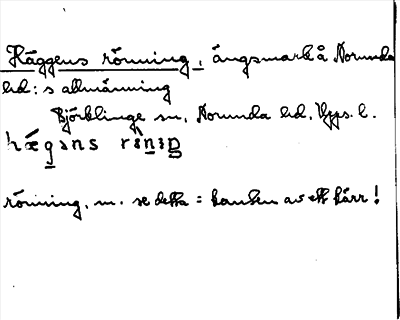 Häggens rönning, ängsmark å Norunda
hd:s allmänning
Björklinge sn, Norunda hd, Upps. l.
hægəns rönıŋ
rönning, m. se detta = kanten av ett kärr!